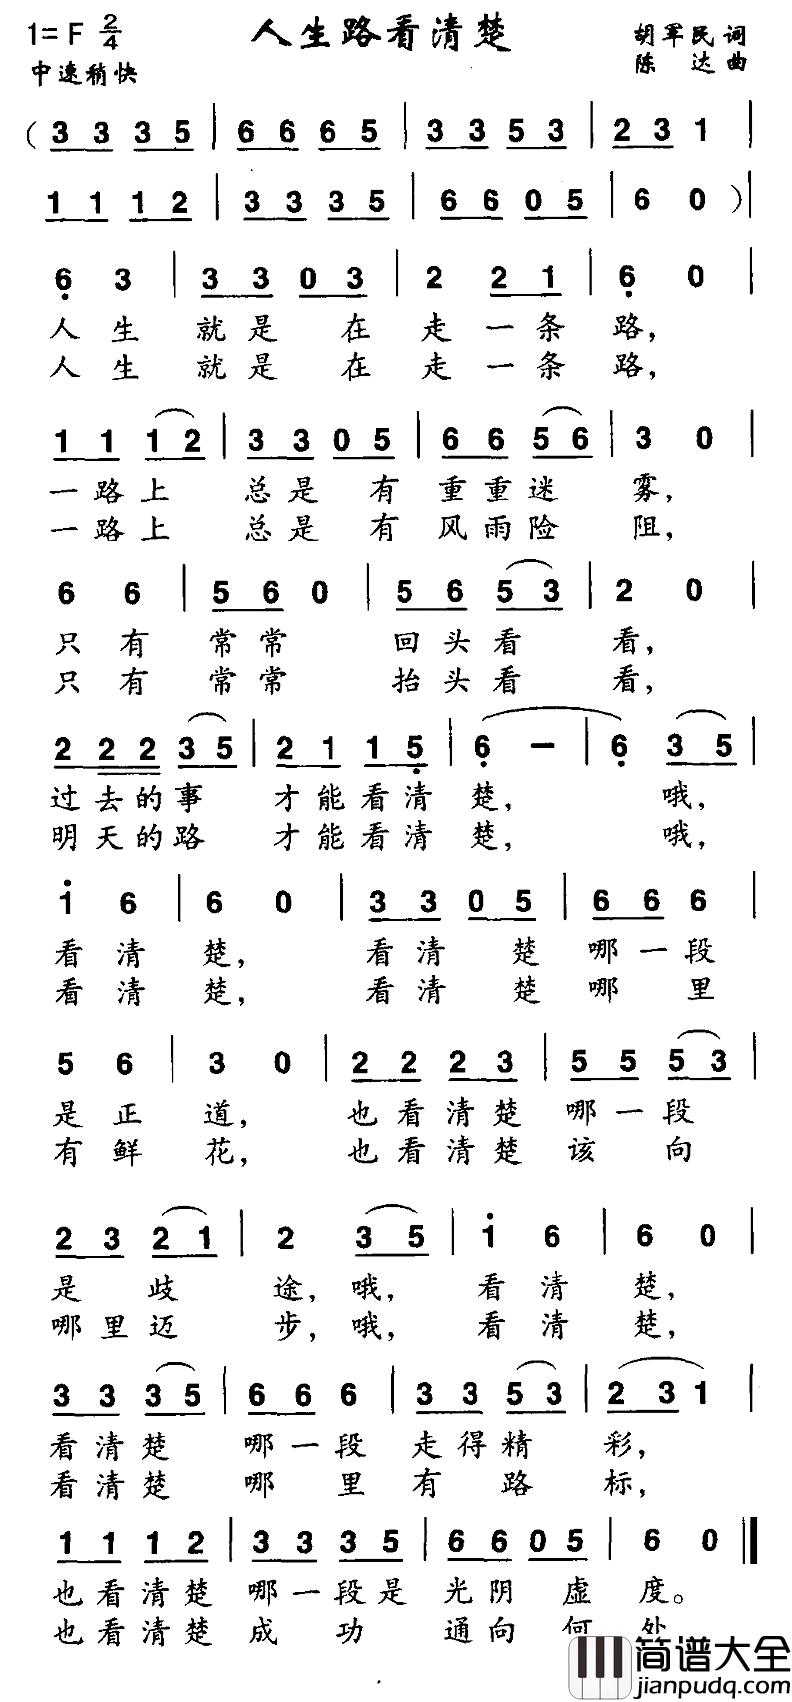 1=F 2/4 人生路看清楚 胡军民词
中速稍快 陈达曲
(3 3 3 5 | 6 6 6 5 | 3 3 5 3 | 2 3 1 |
1 1 1 2 | 3 3 3 5 | 6 6 0 5 | 6 0 )|
6 3 | 3 3 0 3 | 2 2 1 | 6 0 |
人生 就是 在 走一条 路,
人生 就是 在 走一条 路,
1 1 1 2 | 3 3 0 5 | 6 6 5 6 | 3 0 |
一路上 总是 有 重重迷 雾,
一路上 总是 有 风雨险 阻,
6 6 | 5 6 0 | 5 6 5 3 | 2 0 |
只有 常常 回头看 看,
只有 常常 抬头看 看,
2 2 2 3 5 | 2 1 1 5 | 6 - | 6 3 5 |
过去的事 才能看清 楚, 哦,
明天的路 才能看清 楚, 哦,
1 6 | 6 0 | 3 3 0 5 | 6 6 6 |
看清 楚, 看清 楚 哪一段
看清 楚, 看清 楚 哪里
5 6 | 3 0 | 2 2 2 3 | 5 5 5 3 |
是正 道, 也看清楚 哪一段
有鲜 花, 也看清楚 该向
2 3 2 1 | 2 3 5 | 1 6 | 6 0 |
是歧 途,哦, 看清 楚,
哪里迈 步,哦, 看清 楚,
3 3 3 5 | 6 6 6 | 3 3 5 3 | 2 3 1 |
看清楚 哪一段 走得精 彩,
看清楚 哪里 有路 标,
1 1 1 2 | 3 3 3 5 | 6 6 0 5 | 6 0 ‖
也看清楚 哪一段是 光阴 虚 度。
也看清楚 成功 通向 何 处
简谱大全
jianpudq.com